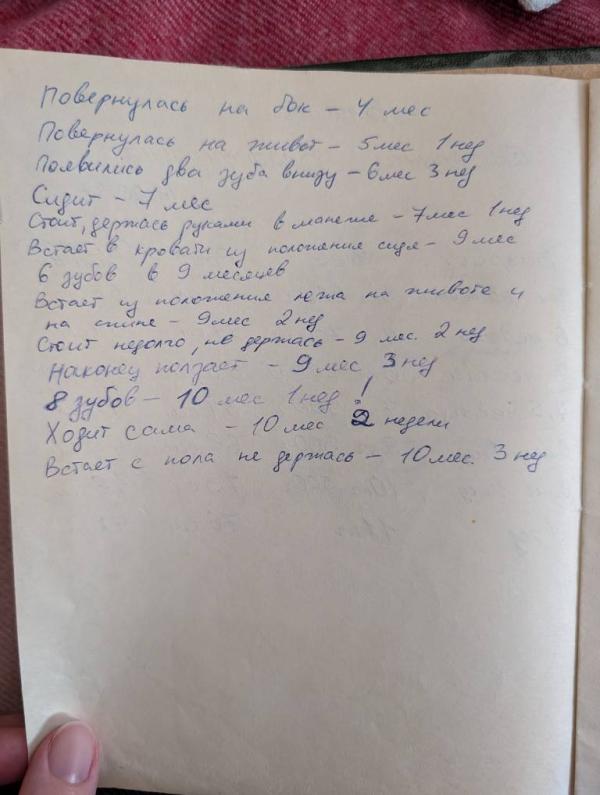 Повернулась на бок – 4 мес
Повернулась на живот – 5 мес 1 нед
Появились два зуба внизу – 6 мес 3 нед
Сидит – 7 мес
Стоит, держась руками в манеже – 7 мес 1 нед
Встает в кровати из положения сидя – 9 мес
6 зубов в 9 месяцев
Встает из положения лежа на животе и
на спине – 9 мес 2 нед
Стоит недолго, не держась – 9 мес. 2 нед
Наконец ползает – 9 мес 3 нед
8 зубов – 10 мес 1 нед !
Ходит сама – 10 мес 2 недели
Встает с пола не держась – 10 мес. 3 нед